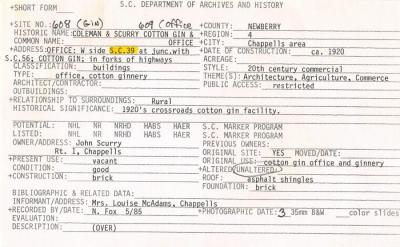 +SHORT FORM S.C. DEPARTMENT OF ARCHIVES AND HISTORY
+SITE NO. 608 (GIN) 609 (Office +COUNTY: NEWBERRY
HISTORIC NAME: COLEMAN & SCURRY COTTON GIN & +REGION: 4
COMMON NAME: OFFICE +CITY: Chappells area
+ADDRESS: OFFICE: W side S.C.39 at junc.with +DATE OF CONSTRUCTION: ca. 1920
S.C.56; COTTON GIN: in forks of highways ACREAGE:
CLASSIFICATION: buildings STYLE: 20th century commercial
TYPE: office, cotton ginnery THEME(S): Architecture, Agriculture, Commerce
ARCHITECT/CONTRACTOR: PUBLIC ACCESS: restricted
OUTBUILDINGS:
+RELATIONSHIP TO SURROUNDINGS: Rural
HISTORICAL SIGNIFICANCE: 1920's crossroads cotton gin facility.
POTENTIAL: NHL NR NRHD HABS HAER S.C. MARKER PROGRAM
LISTED: NHL NR NRHD HABS HAER S.C. MARKER PROGRAM
OWNER/ADDRESS: John Scurry PREVIOUS OWNERS:
Rt. 1, Chappells ORIGINAL SITE: YES MOVED/DATE:
+PRESENT USE: vacant ORIGINAL USE: cotton gin office and ginnery
CONDITION: good +ALTERED/UNALTERED:
+CONSTRUCTION: brick ROOF: asphalt shingles
FOUNDATION: brick
BIBLIOGRAPHIC & RELATED DATA:
INFORMANT/ADDRESS: Mrs. Louise McAdams, Chappells
+RECORDED BY/DATE: N. Fox 5/85 +PHOTOGRAPHIC DATE: 3 35mm B&W color slides
EVALUATION:
DESCRIPTION: (OVER)